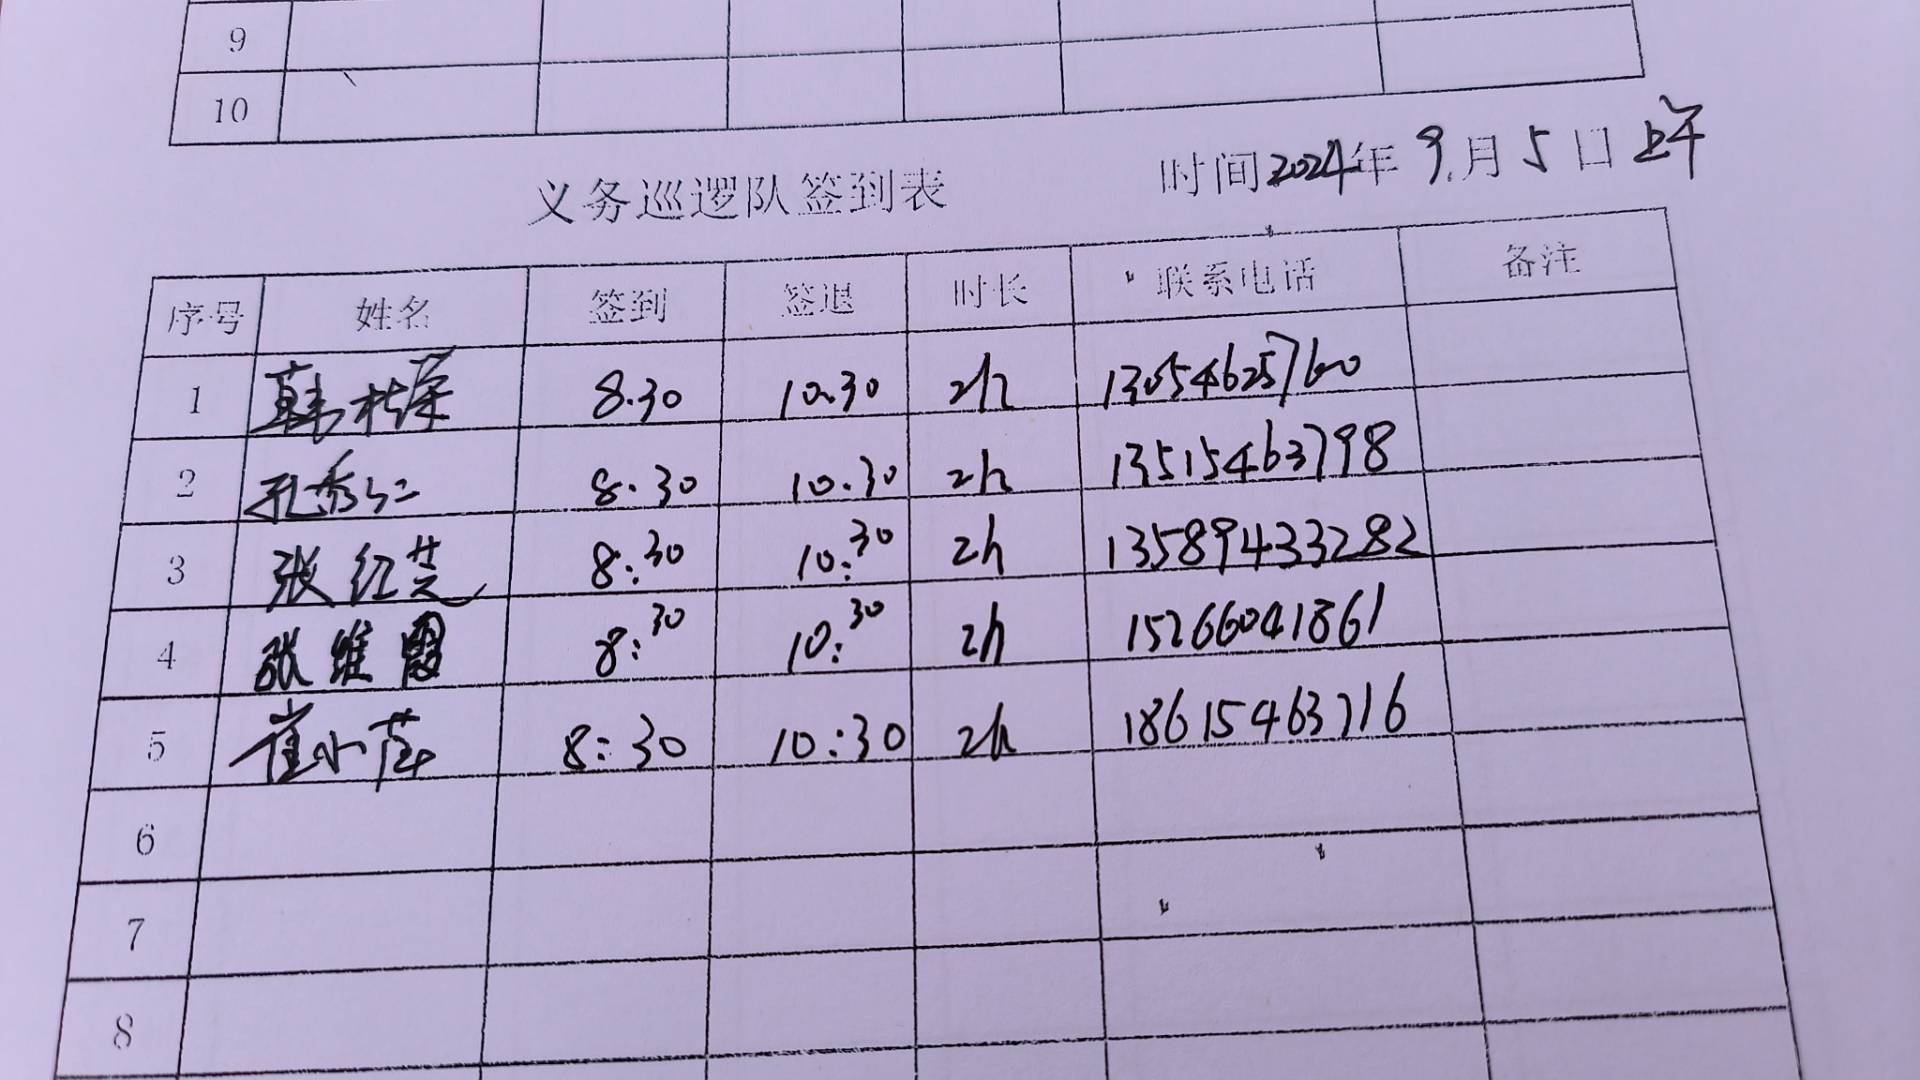 9
10
义务巡逻队签到表 时间2024年9月5日上午
序号 姓名 签到 签退 时长 联系电话 备注
1 韩 8.30 10.30 2h 13054625760
2 孔秀仁 8.30 10.30 2h 13515463798
3 张红芝 8:30 10:30 2h 13589433282
4 张维霞 8:30 10:30 2h 15266041861
5 崔小萍 8:30 10:30 2h 18615463716
6
7
8